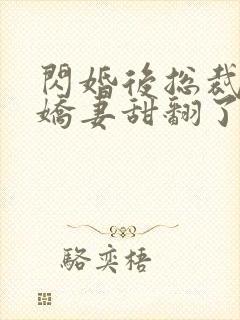 閃婚後總裁
嬌妻甜翻了
駱奕梧